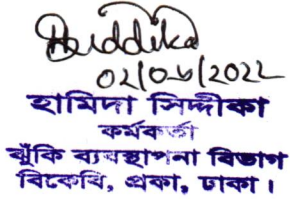 Siddika
02/06/2022
হামিদা সিদ্দীকা
কর্মকর্তা
ঝুঁকি ব্যবস্থাপনা বিভাগ
বিকেবি, প্রকা, ঢাকা।